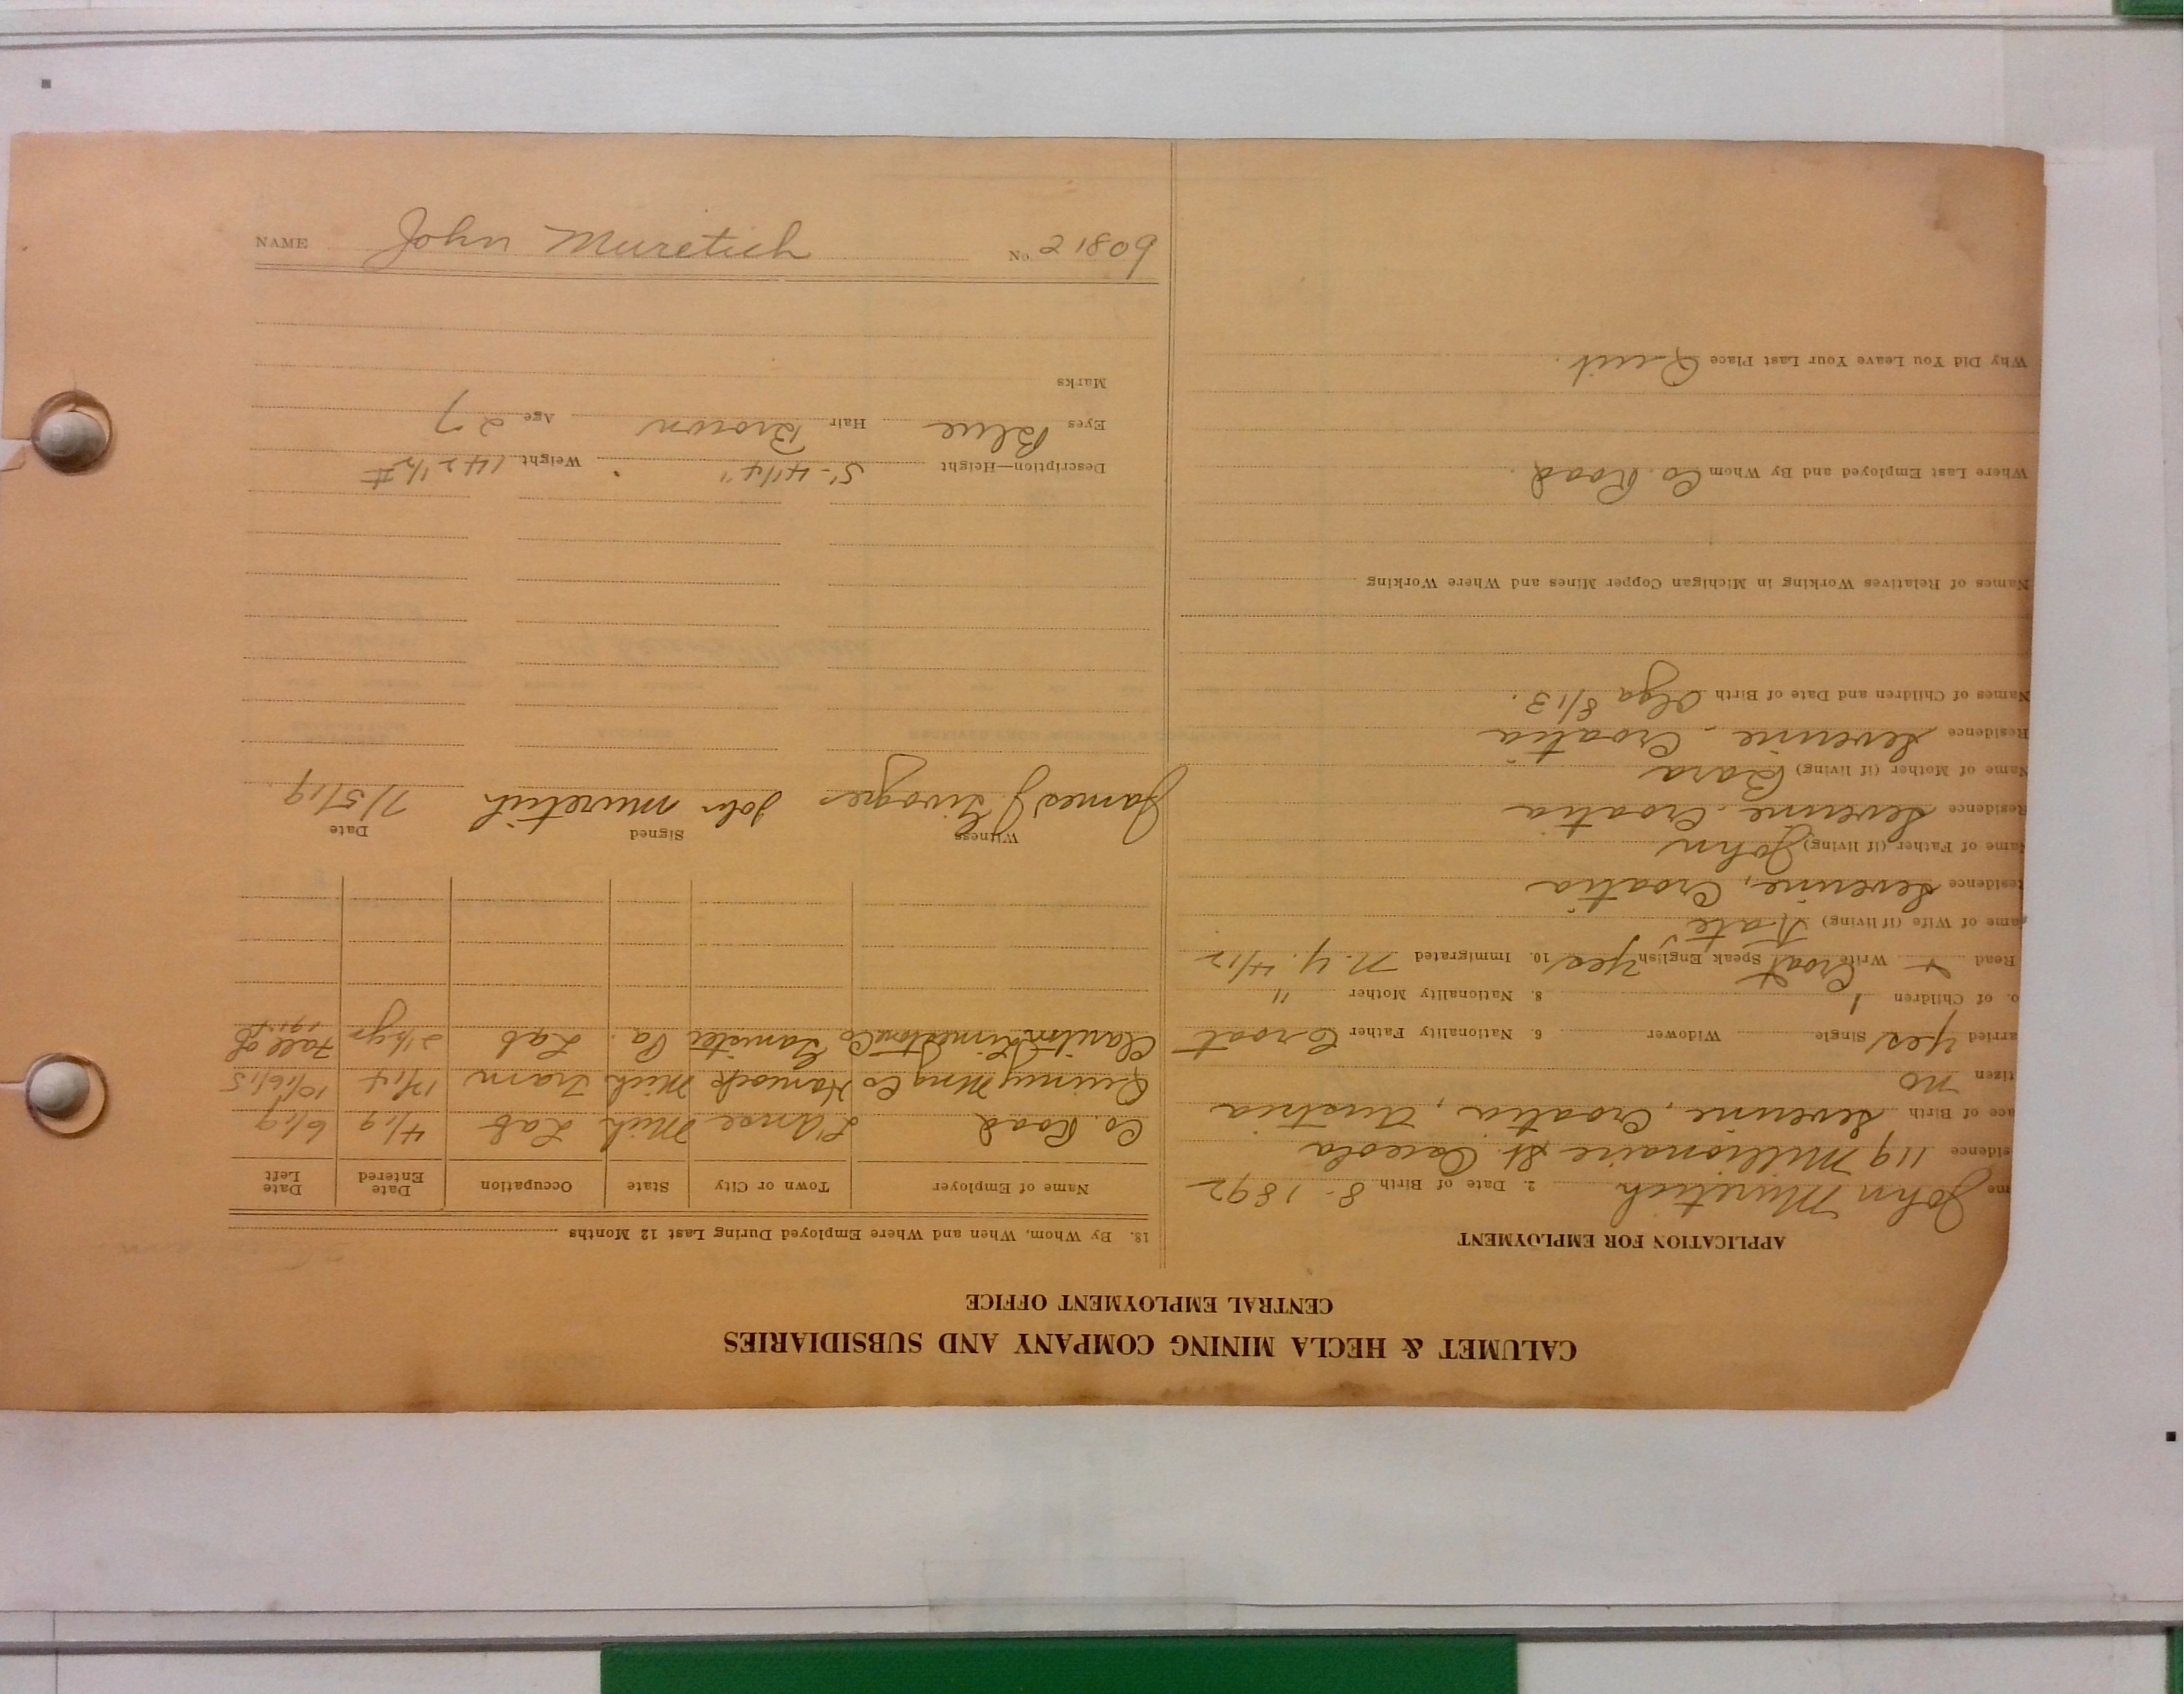 CALUMET & HECLA MINING COMPANY AND SUBSIDIARIES
CENTRAL EMPLOYMENT OFFICE
APPLICATION FOR EMPLOYMENT
me John Muretich 2. Date of Birth 8-1892
sidence 119 Millionaire St. Osceola
ace of Birth Severine, Croatia, Austria
tizen no
arried Yes Single Widower 6. Nationality Father Croat
o. of Children 1 8. Nationality Mother "
Read + Write Croat Speak English Yes 10. Immigrated N.Y. 4/12
ame of Wife (if living) Kate
esidence Severine, Croatia
Name of Father (if living) John
Residence Severine, Croatia
Name of Mother (if living) Bara
Residence Severine, Croatia
Names of Children and Date of Birth Olga 8/13.
Names of Relatives Working in Michigan Copper Mines and Where Working
Where Last Employed and By Whom Co. Road.
Why Did You Leave Your Last Place Quit.
18. By Whom, When and Where Employed During Last 12 Months
Name of Employer Town or City State Occupation Date Entered Date Left
Co. Road L'Anse Mich Lab 4/19 6/19
Quincy Mng Co Hancock Mich Tram 12/14 10/16/15
Limestone Co Pa. Lab 2 1/2 yr Fall of
Witness Signed Date
James J. John muretich 7/5/19.
Description—Height 5'-4 1/4" Weight 142 1/2 #
Eyes Blue Hair Brown Age 27
Marks
NAME John Muretich No. 21809